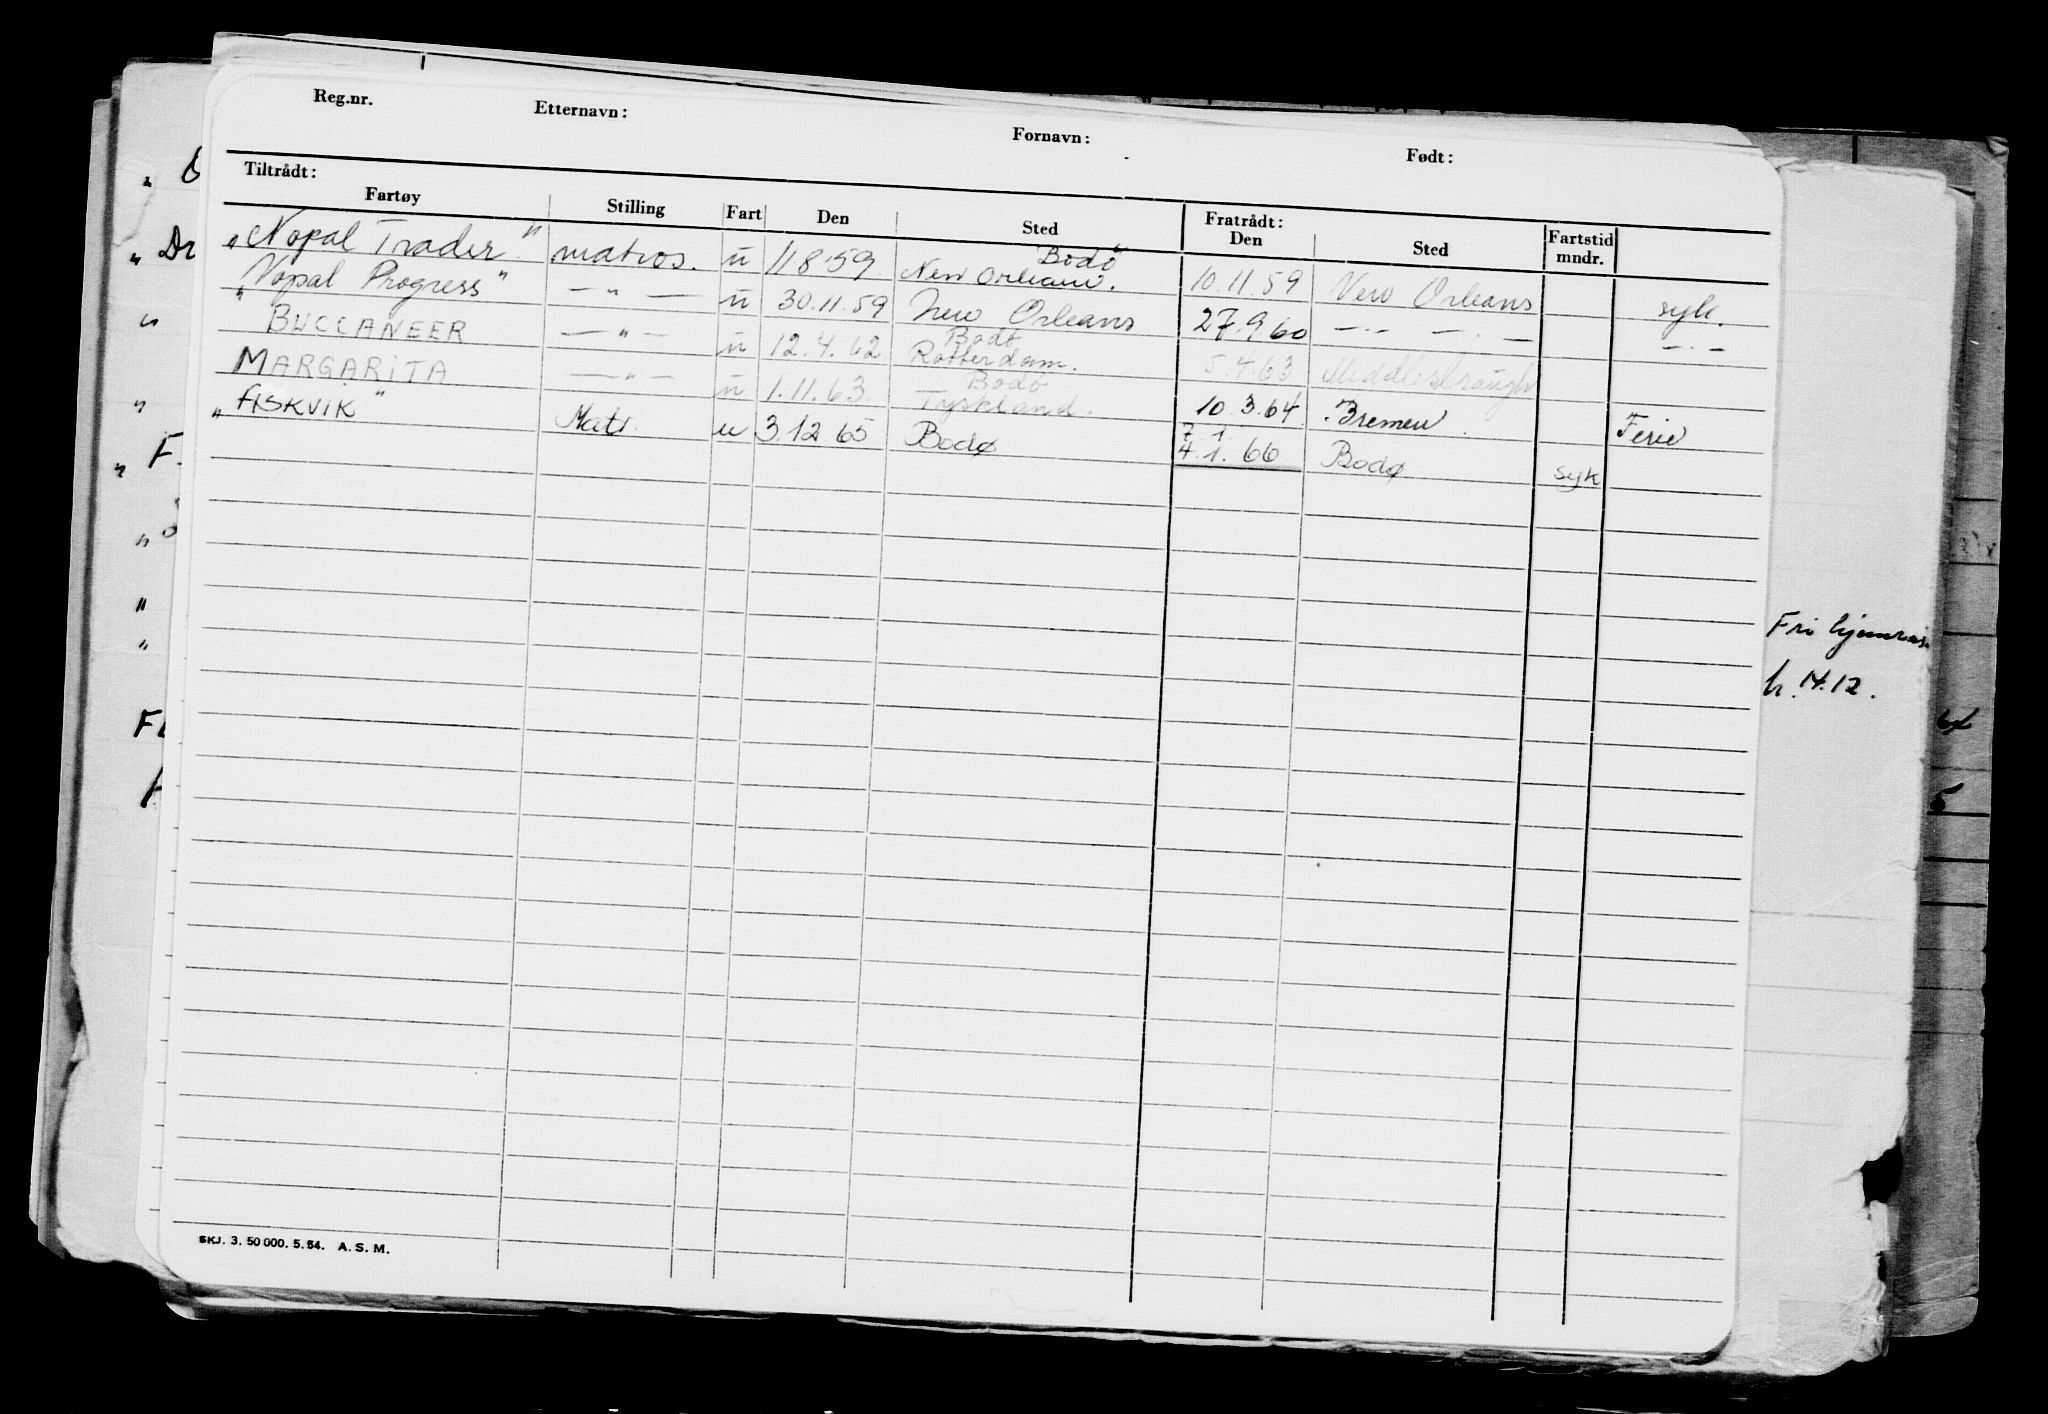 Reg.nr. Etternavn: Fornavn: Født:
Tiltrådt: Fratrådt:
Fartøy Stilling Fart Den Sted Den Sted Fartstid mndr.
"Nopal Trader" matros. u 11 8 59 Bodø New Orleans. 10.11.59 New Orleans syk.
"Nopal Progress" — " — u 30.11.59 New Orleans 27.9 60 — " — — " —
BUCCANEER — " — u 12.4.62 Bodø Rotterdam. 5.4.63 Middlesbrough
MARGARITA — " — u 1.11.63. Bodø Tyskland. 10.3.64. Bremen. Ferie
"ASKVIK" Matr. u 3.12 65 Bodø 7.1. 4.1.66 Bodø syk
Fri hjemreis.
h. 14.12.
SKJ. 3. 50 000. 5. 54. A. S. M.